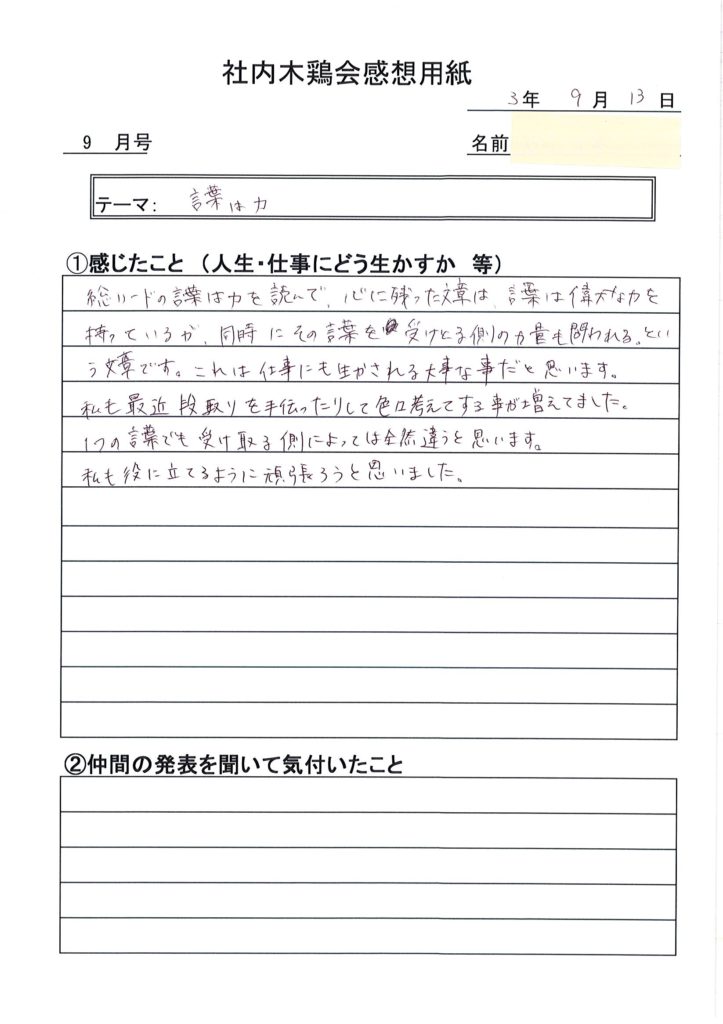 社内木鶏会感想用紙
3年 9月 13日
9 月号
名前
テーマ: 言葉は力
①感じたこと (人生・仕事にどう生かすか 等)
総リードの言葉は力を読んで、心に残った文章は、言葉は偉大な力を
持っているが、同時にその言葉を受けとる側の力量も問われる。とい
う文章です。これは仕事にも生かされる大事な事だと思います。
私も最近段取りを手伝ったりして色口考えてする事が増えてました。
1つの言葉でも受け取る側によっては全然違うと思います。
私も役に立てるように頑張ろうと思いました。
②仲間の発表を聞いて気付いたこと